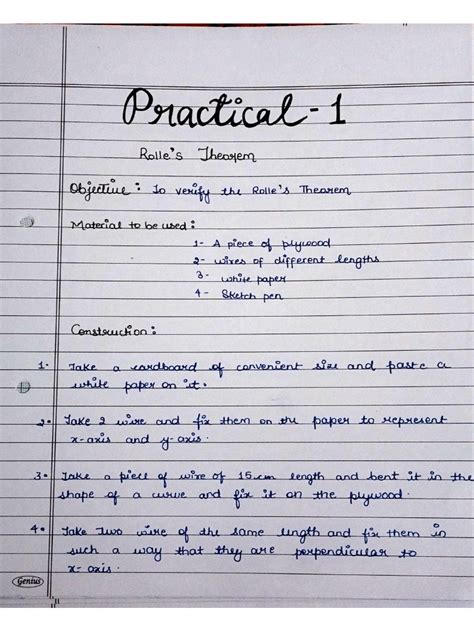 Practical - 1
Rolle's Theorem
Objective : To verify the Rolle's Theorem
Material to be used :
1- A piece of plywood
2- wires of different lengths
3- white paper
4- Sketch pen
Construction :
1. Take a cardboard of convenient size and paste a
white paper on it.
2. Take 2 wire and fix them on the paper to represent
x-axis and y-axis.
3. Take a piece of wire of 15 cm length and bent it in the
shape of a curve and fix it on the plywood.
4. Take two wire of the same length and fix them in
such a way that they are perpendicular to
x-axis.
Genius